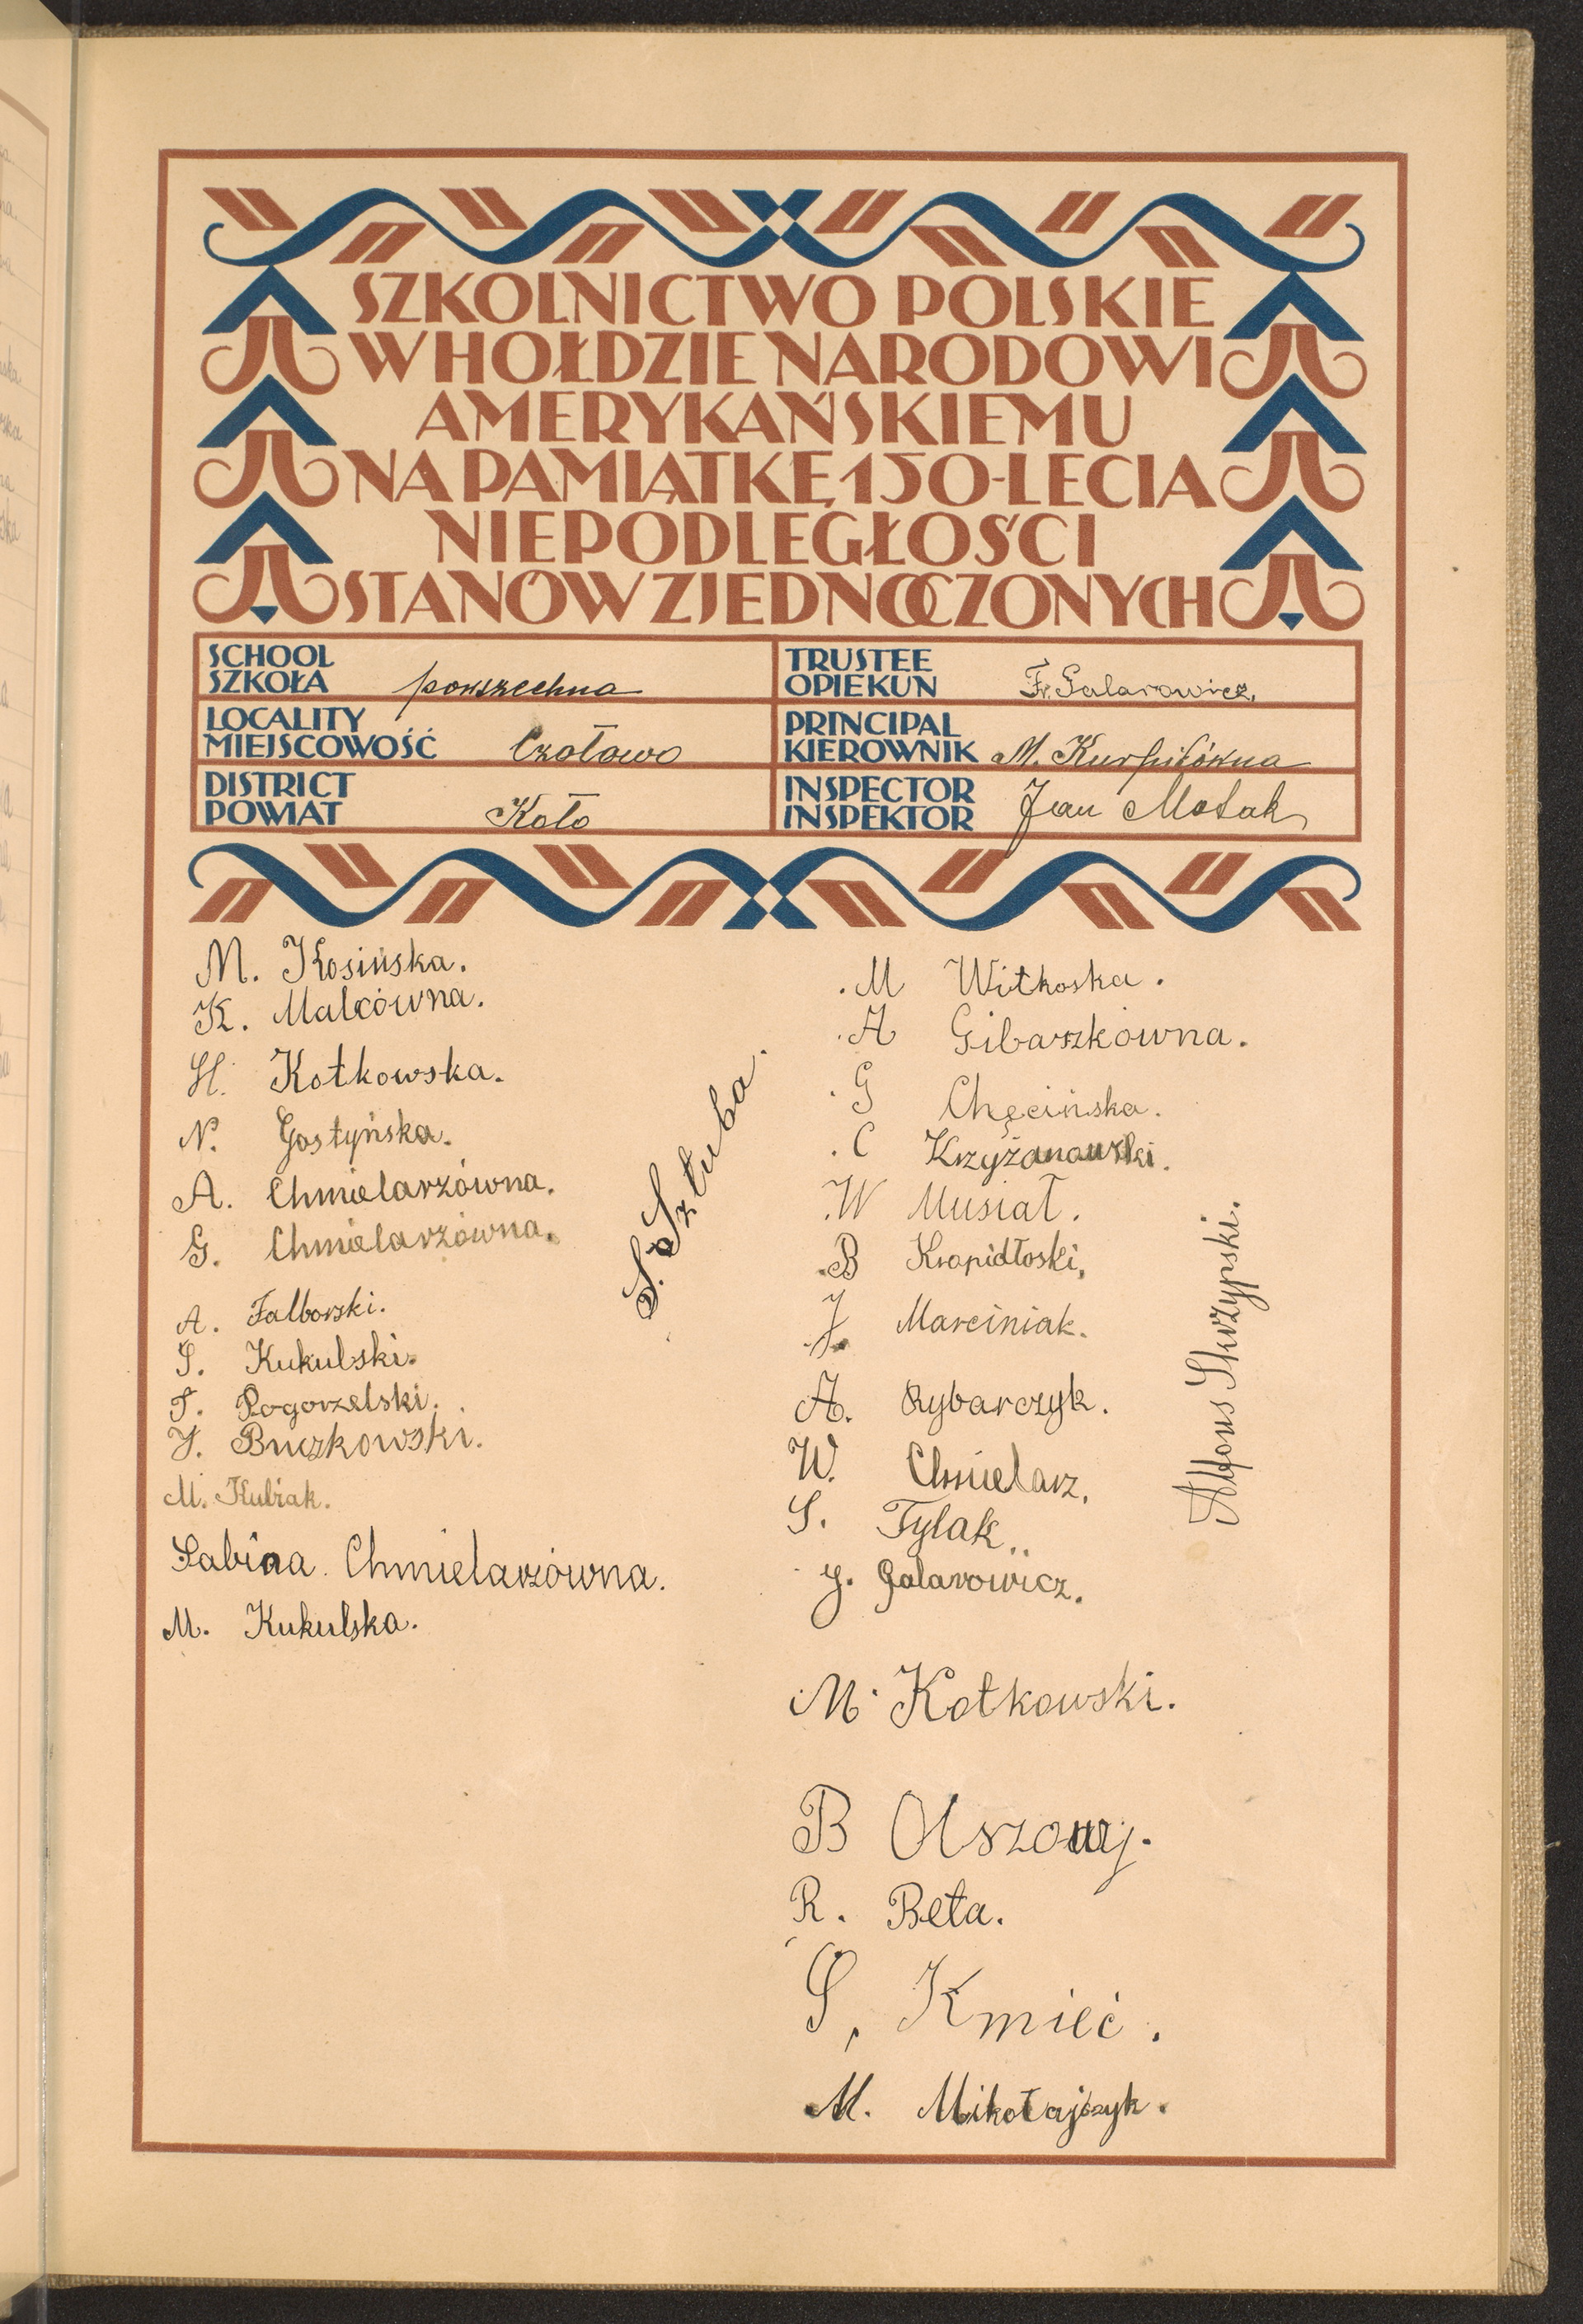 SZKOLNICTWO POLSKIE
W HOŁDZIE NARODOWI
AMERYKAŃSKIEMU
NA PAMIĄTKĘ 150-LECIA
NIEPODLEGŁOŚCI
STANÓW ZJEDNOCZONYCH
SCHOOL
SZKOŁA powszechna
TRUSTEE
OPIEKUN Fr. Galarowicz.
LOCALITY
MIEJSCOWOŚĆ Czołowo
PRINCIPAL
KIEROWNIK M.
DISTRICT
POWIAT Koło
INSPECTOR
INSPEKTOR Jan
M. Kosińska.
K. Malcówna.
H. Kotkowska.
N. Gostyńska.
A. Chmielarzówna.
G. Chmielarzówna.
A. Falborski.
S. Kukulski.
T. Pogorzelski.
J. Buczkowski.
M. Kubiak.
Sabina. Chmielarzówna.
M. Kukulska.
S. Sztuba.
M Witkoska.
A Gibaszkówna.
G Chęcińska.
C Krzyżanowski.
W Musiał.
B Krapidłoski.
J Marciniak.
A. Rybarczyk.
W. Chmielarz.
S. Tylak.
J. Galarowicz.
M. Kotkowski.
B Olszowy.
R. Beta.
S. Kmieć.
M. Mikołajczyk.
Alfons Skrzypski.